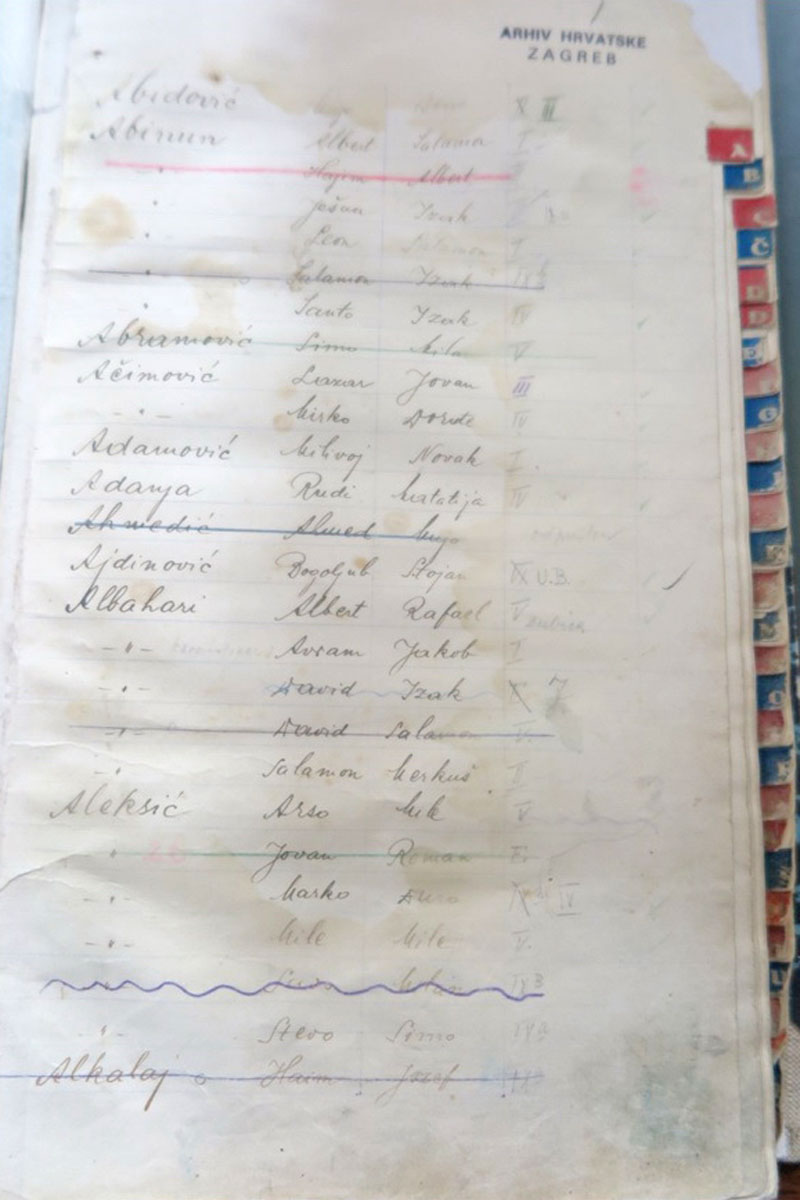 ARHIV HRVATSKE
ZAGREB
Abidović X III
Abinun Albert Salamon I
Hajim Albert
Jozua Izak
Leon Salamon I
Salamon Izak IVb
Santo Izak IV
Abramović Simo Mile V
Ačimović Lazar Jovan III
-"- Mirko Đorđe IV
Adamović Milivoj Novak I
Adanja Rudi Matatija IV
Ahmedić Ahmed Mujo
Ajdinović Bogoljub Stojan IX U.B.
Albahari Albert Rafael V
-"- Avram Jakob I
-"- David Izak X 7
-"- David Salamon V.
-"- Salamon Merkuš II
Aleksić Arso Mile V
" Jovan Roman
-"- Marko Đuro IV
-"- Mile Mile V.
Milan IVB
-"- Stevo Simo IVa
Alkalaj Haim Jozef
A
B
C
Č
D
E
G